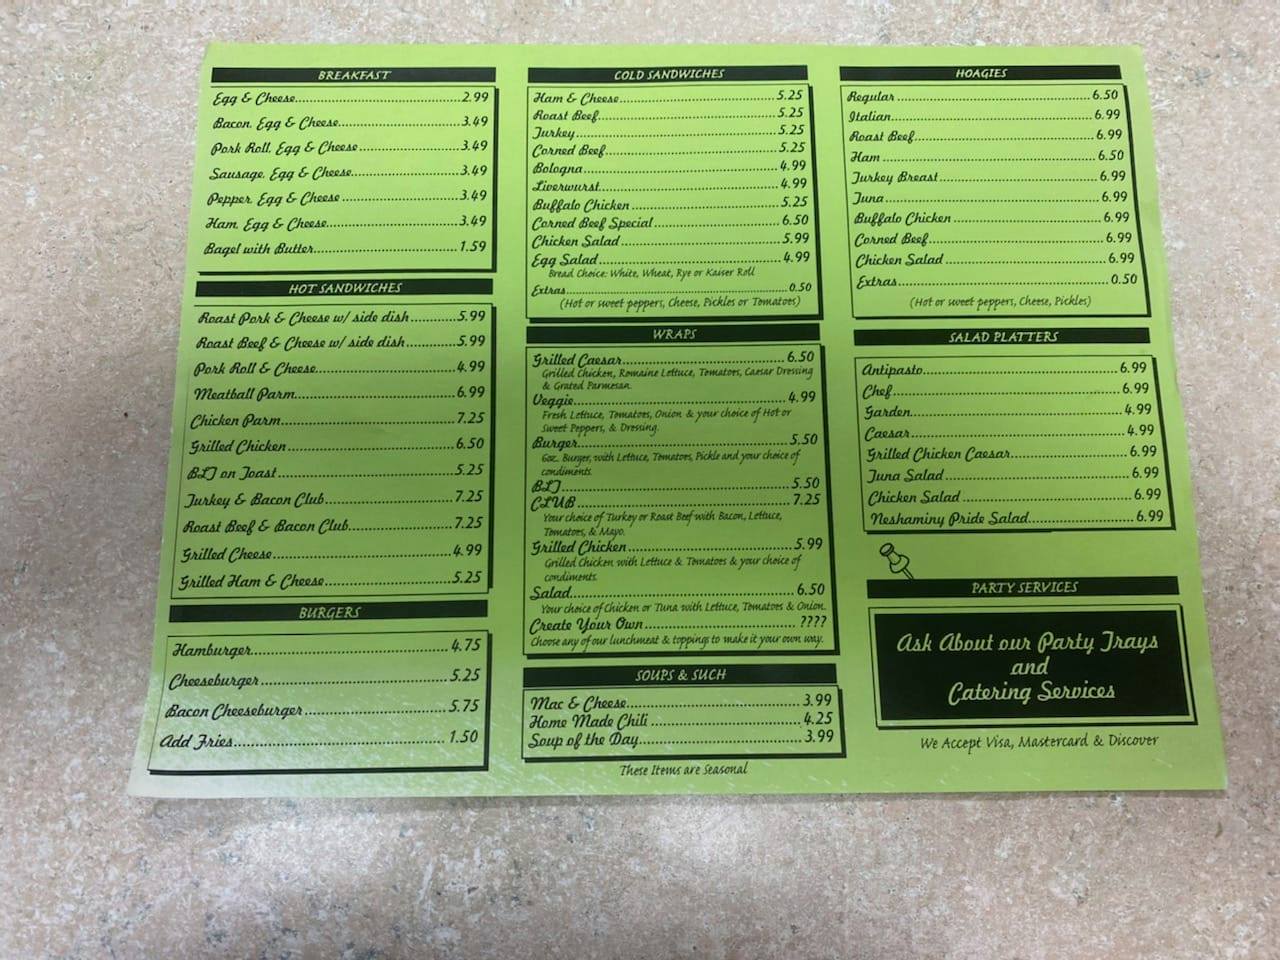 BREAKFAST
Egg & Cheese 2.99
Bacon, Egg & Cheese 3.49
Pork Roll, Egg & Cheese 3.49
Sausage, Egg & Cheese 3.49
Pepper, Egg & Cheese 3.49
Ham, Egg & Cheese 3.49
Bagel with Butter 1.59
HOT SANDWICHES
Roast Pork & Cheese w/ side dish 5.99
Roast Beef & Cheese w/ side dish 5.99
Pork Roll & Cheese 4.99
Meatball Parm 6.99
Chicken Parm 7.25
Grilled Chicken 6.50
BLT on Toast 5.25
Turkey & Bacon Club 7.25
Roast Beef & Bacon Club 7.25
Grilled Cheese 4.99
Grilled Ham & Cheese 5.25
BURGERS
Hamburger 4.75
Cheeseburger 5.25
Bacon Cheeseburger 5.75
Add Fries 1.50
COLD SANDWICHES
Ham & Cheese 5.25
Roast Beef 5.25
Turkey 5.25
Corned Beef 5.25
Bologna 4.99
Liverwurst 4.99
Buffalo Chicken 5.25
Corned Beef Special 6.50
Chicken Salad 5.99
Egg Salad 4.99
Bread Choice: White, Wheat, Rye or Kaiser Roll
Extras 0.50
(Hot or sweet peppers, Cheese, Pickles or Tomatoes)
WRAPS
Grilled Caesar 6.50
Grilled Chicken, Romaine Lettuce, Tomatoes, Caesar Dressing
& Grated Parmesan.
Veggie 4.99
Fresh Lettuce, Tomatoes, Onion & your choice of Hot or
Sweet Peppers, & Dressing.
Burger 5.50
6oz. Burger, with Lettuce, Tomatoes, Pickle and your choice of
condiments.
BLT 5.50
CLUB 7.25
Your choice of Turkey or Roast Beef with Bacon, Lettuce,
Tomatoes, & Mayo.
Grilled Chicken 5.99
Grilled Chicken with Lettuce & Tomatoes & your choice of
condiments.
Salad 6.50
Your choice of Chicken or Tuna with Lettuce, Tomatoes & Onion.
Create Your Own ????
Choose any of our lunchmeat & toppings to make it your own way.
SOUPS & SUCH
Mac & Cheese 3.99
Home Made Chili 4.25
Soup of the Day 3.99
These Items are Seasonal
HOAGIES
Regular 6.50
Italian 6.99
Roast Beef 6.99
Ham 6.50
Turkey Breast 6.99
Tuna 6.99
Buffalo Chicken 6.99
Corned Beef 6.99
Chicken Salad 6.99
Extras 0.50
(Hot or sweet peppers, Cheese, Pickles)
SALAD PLATTERS
Antipasto 6.99
Chef 6.99
Garden 4.99
Caesar 4.99
Grilled Chicken Caesar 6.99
Tuna Salad 6.99
Chicken Salad 6.99
Neshaminy Pride Salad 6.99
PARTY SERVICES
Ask About our Party Trays
and
Catering Services
We Accept Visa, Mastercard & Discover